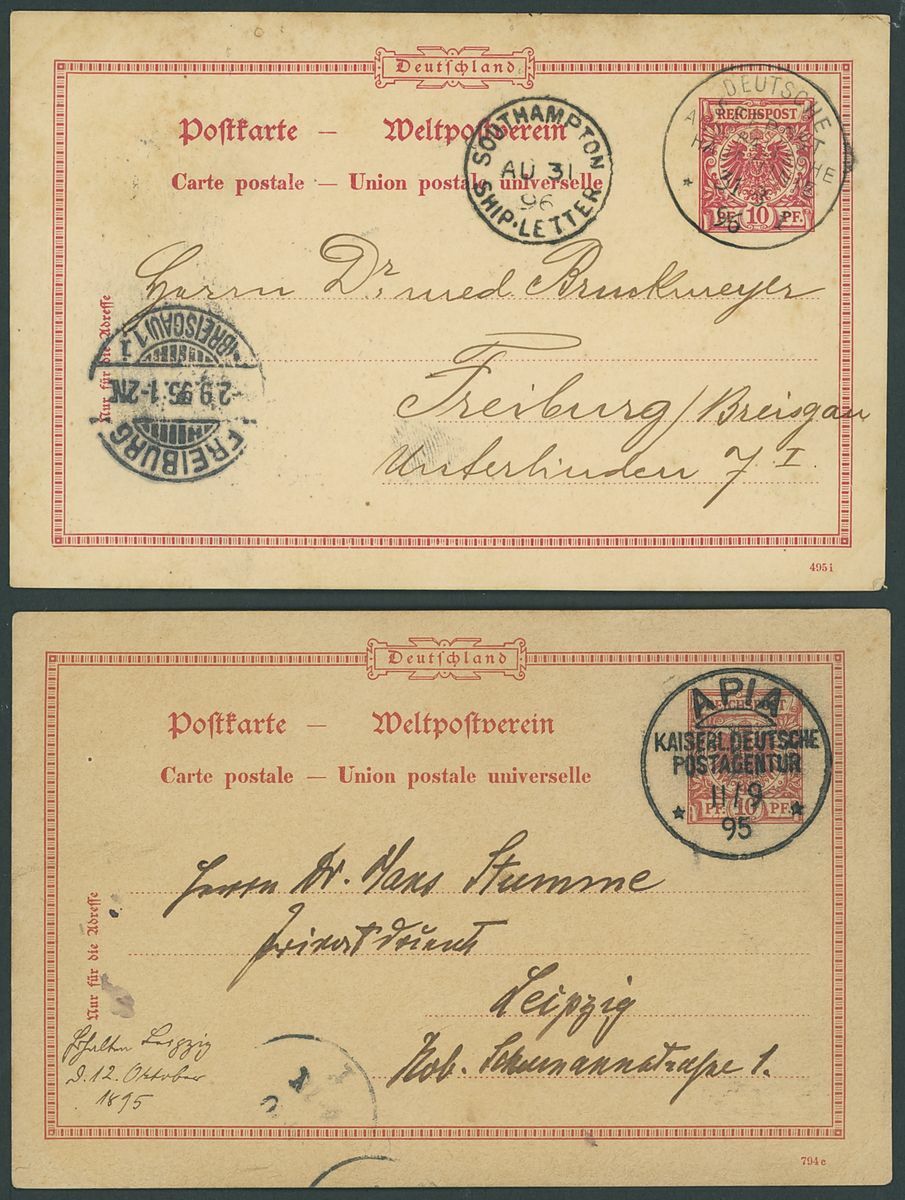 Deutschland
Postkarte — Weltpostverein
Carte postale — Union postale universelle
SOUTHAMPTON
AU 31
96
SHIP-LETTER
DEUTSCHE
REICHSPOST
PF. 10 PF.
Herrn Dr. med. Bruckmeyer
Freiburg/Breisgau
Unterlinden 7 I.
Nur für die Adresse
(BREISGAU) 1.
FREIBURG
495 i
Deutschland
Postkarte — Weltpostverein
Carte postale — Union postale universelle
APIA
KAISERL. DEUTSCHE
POSTAGENTUR
11/9
95
PF. 10 PF.
Herrn Dr. Hans Stumme
Privatdocent
Leipzig
Rob. Schumannstraße 1.
Nur für die Adresse
Erhalten Leipzig
d. 12. Oktober
1895
794 e